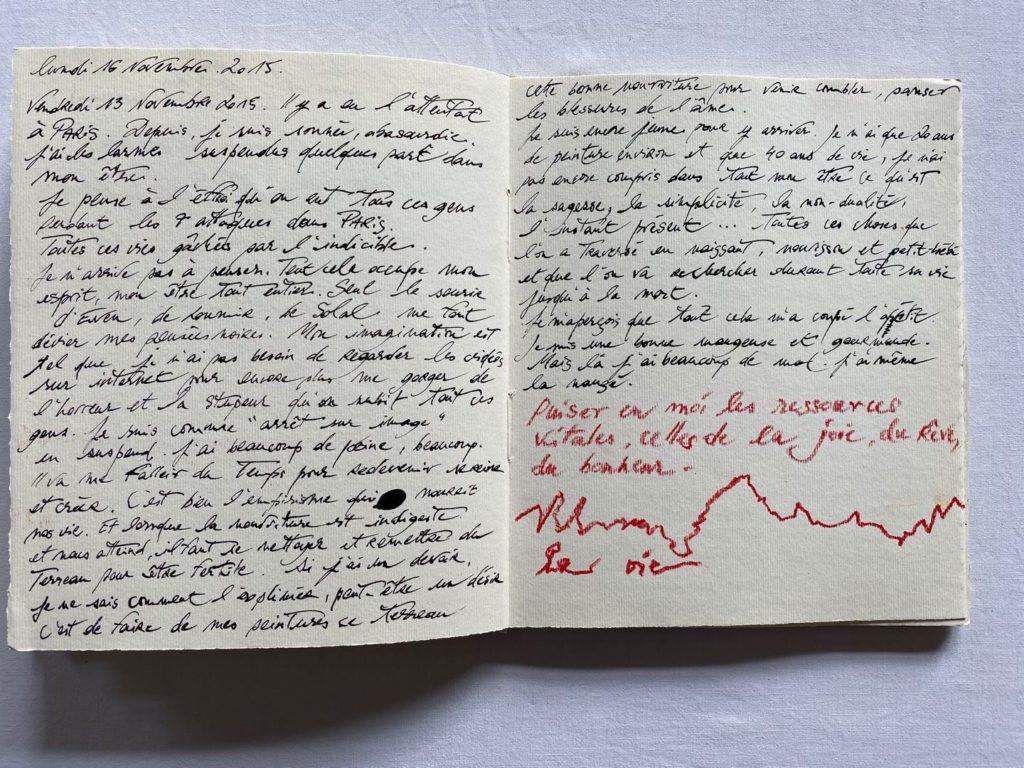 lundi 16 Novembre. 2015.
Vendredi 13 Novembre 2015. Il y a eu l'attentat
à PARIS. Depuis, je suis sonnée, abasourdie.
J'ai les larmes suspendues quelques part dans
mon être.
Je pense à l'effroi qu'on eut tous ces gens
pendant les 7 attaques dans PARIS.
Toutes ces vies gâchées par l'indicible.
Je n'arrive pas à penser. Tout cela occupe mon
esprit, mon être tout entier. Seul le sourire
d'Ewen, de de Solal me font
dévier mes pensées noires. Mon imagination est
tel que je n'ai pas besoin de regarder les vidéos
sur internet pour encore plus me gorger de
l'horreur et la stupeur qu'on subit tout ces
gens. Je suis comme "arrêt sur image"
en suspend. J'ai beaucoup de peine, beaucoup.
Il va me falloir du Temps pour redevenir sereine
et créer. C'est bien l'empirisme qui nourrit
nos vie. Et lorsque la nourriture est indigeste
et nous atteind, il faut se nettoyer et remettre du
Terreau pour être fertile. Si j'ai un devoir,
je ne sais comment l'exprimer, peut-être un désir
c'est de faire de mes peintures ce terreau
cette bonne nourriture pour venir combler, panser
les blessures de l'âme.
Je suis encore jeune pour y arriver. Je n'ai que 20 ans
de peinture environ et que 40 ans de vie, je n'ai
pas encore compris dans tout mon être ce qu'est
la sagesse, la simplicité, la non-dualité,
l'instant présent ... Toutes ces choses que
l'on a traversé en naissant, nourisson et petit bébé
et que l'on va rechercher durant toute sa vie
jusqu'à la mort.
Je m'aperçois que tout cela m'a coupé l'appétit.
Je suis une bonne mangeuse et gourmande.
Mais là j'ai beaucoup de mal. j'ai même
la nausé.
Puiser en moi les ressources
vitales, celles de la joie, du Rêve,
du bonheur -
La vie